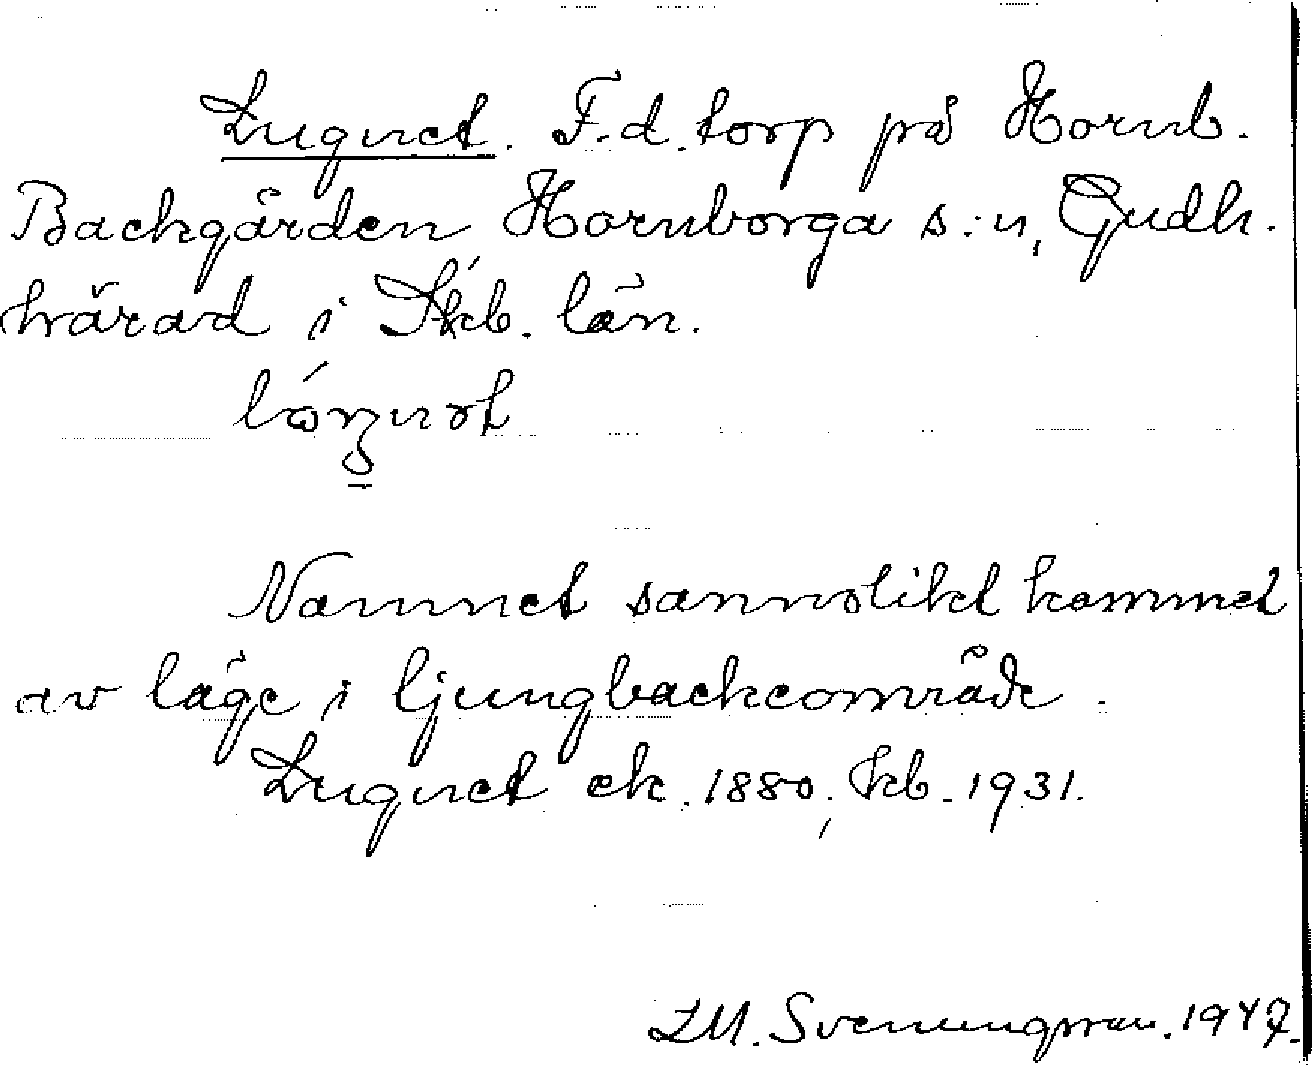 Lugnet. F.d. torp på Hornb.
Backgården Hornborga s:n, Gudh.
härad i Skb. län.
Namnet sannolikt kommet
av läge i ljungbackeområde.
Lugnet ek. 1880, kb. 1931.
Svenungsson. 1947.